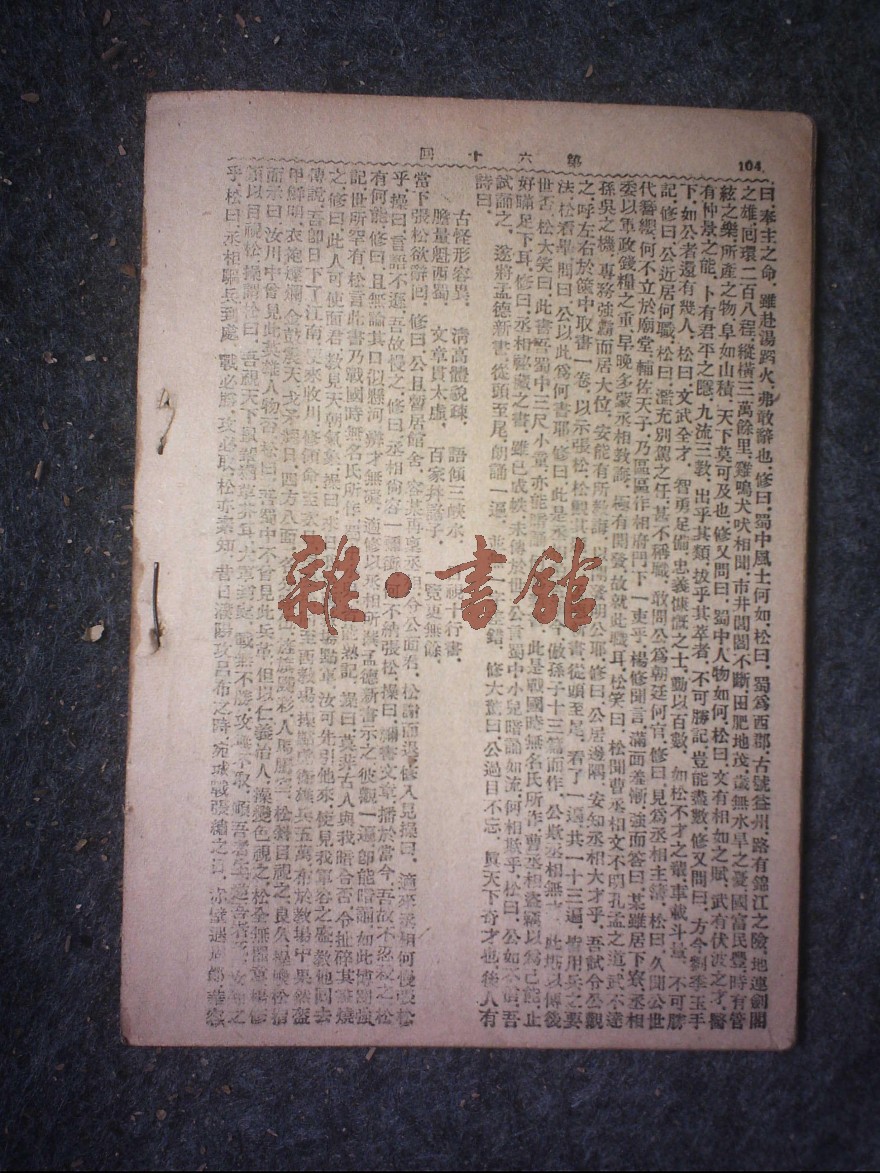 104
第六十回
曰.奉主之命.雖赴湯蹈火.弗敢辭也.修曰.蜀中風土何如.松曰.蜀爲西郡.古號益州.路有錦江之險.地連劍閣
之雄.回環二百八程.縱橫三萬餘里.雞鳴犬吠相聞.市井閭閻不斷.田肥地茂.歲無水旱之憂.國富民豐.時有管
絃之樂.所產之物.阜如山積.天下莫可及也.修又問曰.蜀中人物如何.松曰.文有相如之賦.武有伏波之才.醫
有仲景之能.卜有君平之隱.九流三敎.出乎其類.拔乎其萃者.不可勝記.豈能盡數.修又問曰.方今劉季玉手
下.如公者還有幾人.松曰.文武全才.智勇足備.忠義慷慨之士.動以百數.如松不才之輩.車載斗量.不可勝
記.修曰.公近居何職.松曰.濫充別駕之任.甚不稱職.敢問公爲朝廷何官.修曰.見爲丞相主簿.松曰.久聞公世
代簪纓.何不立於廟堂.輔佐天子.乃區區作相府門下一吏乎.楊修聞言.滿面羞慚.強面而答曰.某雖居下寮.丞相
委以軍政錢糧之重.早晚多蒙丞相敎誨.極有開發.故就此職耳.松笑曰.松聞曹丞相文不明孔孟之道.武不達
孫吳之機.專務強霸而居大位.安能有所敎誨.以開發明公耶.修曰.公居邊隅.安知丞相大才乎.吾試令公觀
之.呼左右於篋中取書一卷.以示張松.松觀其 書.從頭至尾.看了一遍.共一十三篇.皆用兵之要
法.松看畢.問曰.公以此爲何書耶.修曰.此是丞 倣孫子十三篇而作.公欺丞相無才.此堪以傳後
世否.松大笑曰.此書吾蜀中三尺小童.亦能暗誦 此是戰國時無名氏所作.曹丞相盜竊以爲己能.止
好瞞足下耳.修曰.丞相秘藏之書.雖已成帙.未傳於世.公言蜀中小兒暗誦如流.何相欺乎.松曰.公如不信.吾
試誦之.遂將孟德新書.從頭至尾.朗誦一遍.並 錯.修大驚曰.公過目不忘.眞天下奇才也.後人有
詩曰.
古怪形容異. 清高體貌疎. 語傾三峽水. 視十行書.
膽量魁西蜀. 文章貫太虛. 百家 子. 覽更無餘.
當下張松欲辭回.修曰.公且暫居館舍.容某再稟丞相.令公面君.松謝而退.修入見操曰.適來丞相何慢張松
乎.操曰.言語不遜.吾故慢之.修曰.丞相尚容一禰衡.何不納張松.操曰.禰衡文章.播於當今.吾故不忍殺之.松
有何能.修曰.且無論其口似懸河.辯才無礙.適修以丞相所撰孟德新書示之.彼觀一遍.卽能暗誦.如此博聞強
記.世所罕有.松言此書乃戰國時無名氏所作.蜀 熟記.操曰.莫非古人與我暗合否.令扯碎其書燒
之.修曰.此人可使面君.敎見天朝氣象.操曰.來日 場點軍.汝可先引他來.使見我軍容之盛.敎他回去
傳說.吾卽日下了江南.便來收川.修領命.至次 至西敎場.操點虎衛雄兵五萬.布於敎場中.果然盔
甲鮮明.衣袍燦爛.金鼓震天.戈矛耀日.四方八面 旌旗颺彩.人馬騰空.松斜目視之.良久.操喚松指
而示曰.汝川中曾見此英雄人物否.松曰.吾蜀中不曾見此兵革.但以仁義治人.操變色視之.松全無懼意.楊修
頻以目視松.操謂松曰.吾視天下鼠輩猶草芥耳.大軍到處.戰無不勝.攻無不取.順吾者生.逆吾者死.汝知之
乎.松曰.丞相驅兵到處.戰必勝.攻必取.松亦素知.昔日濮陽攻呂布之時.宛城戰張繡之日.赤壁遇周郎.華容
雜·書館